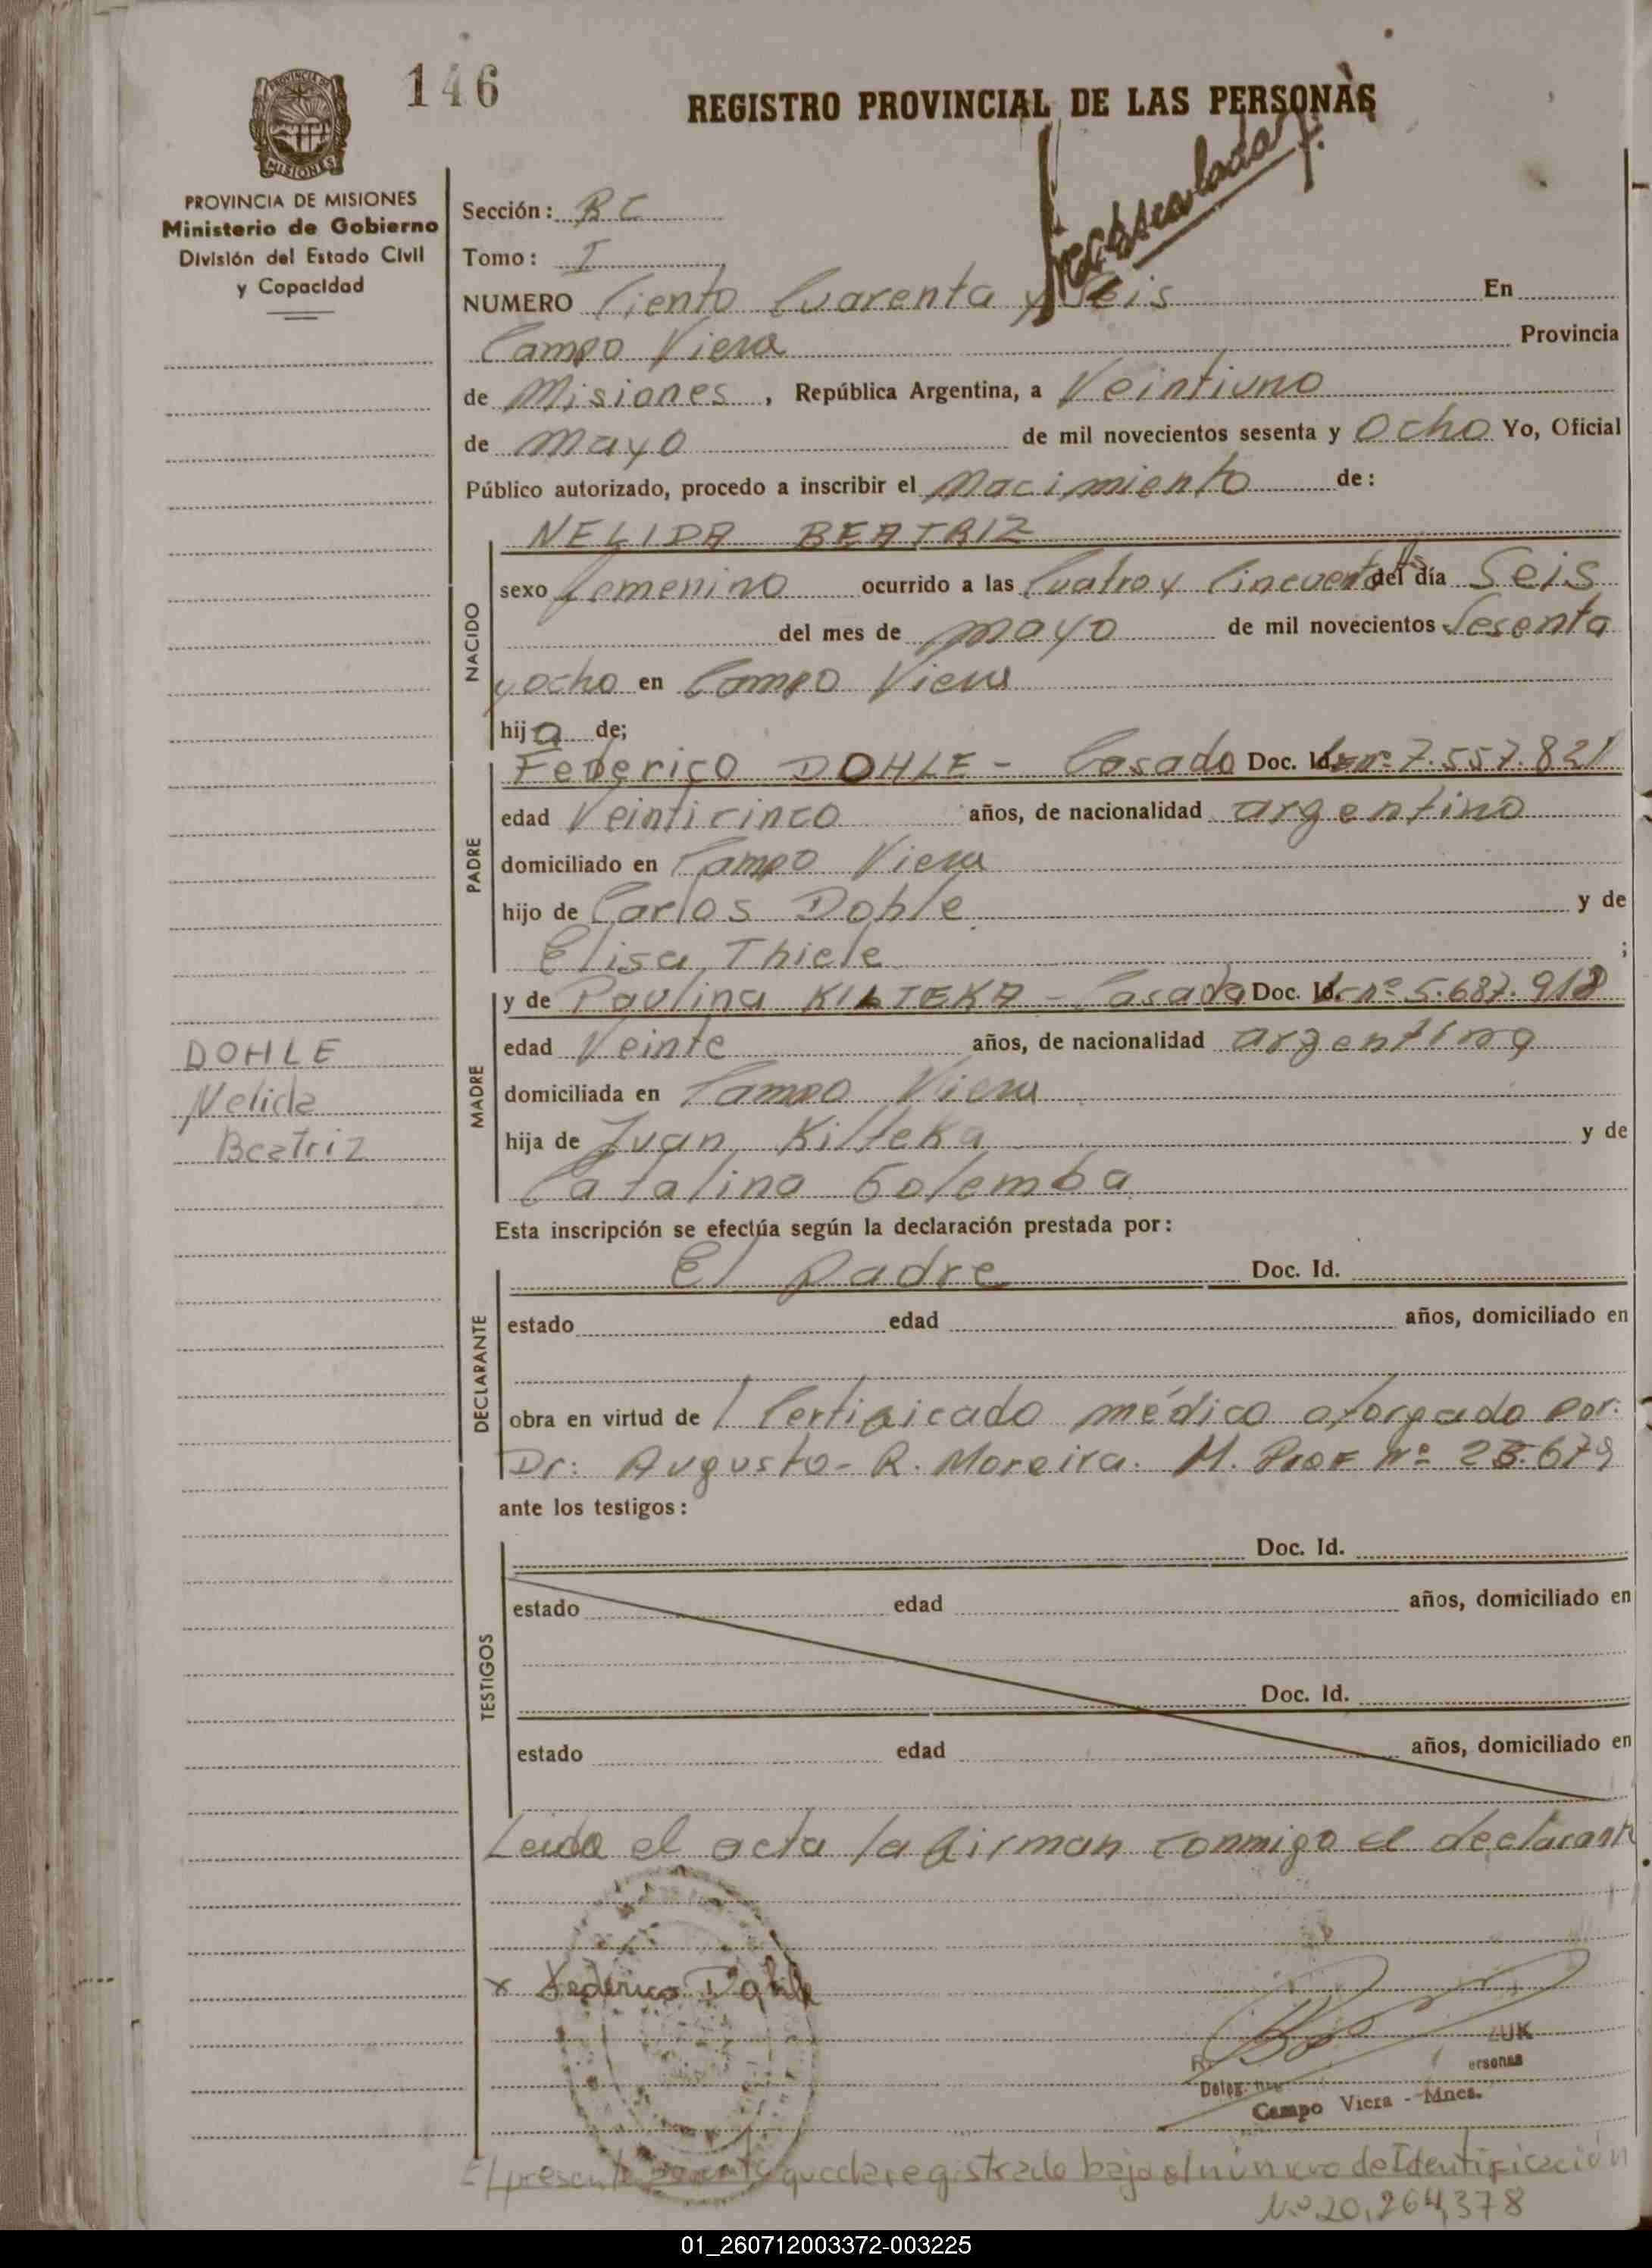 146
REGISTRO PROVINCIAL DE LAS PERSONAS
PROVINCIA DE
MISIONES
PROVINCIA DE MISIONES
Ministerio de Gobierno
División del Estado Civil
y Capacidad
Sección: RC
Tomo: I
NUMERO Ciento Cuarenta y Seis En
Campo Viera Provincia
de Misiones, República Argentina, a Veintiuno
de Mayo de mil novecientos sesenta y Ocho Yo, Oficial
Público autorizado, procedo a inscribir el Nacimiento de:
NELIDA BEATRIZ
NACIDO
sexo femenino ocurrido a las Cuatro y Cincuenta del día Seis
del mes de mayo de mil novecientos Sesenta
y ocho en Campo Viera
hija de;
PADRE
Federico DOHLE - Casado Doc. Id. nº 7.557.821
edad Veinticinco años, de nacionalidad argentino
domiciliado en Campo Viera
hijo de Carlos Dohle y de
Elisa Thiele ;
MADRE
y de Paulina KILTEKA - Casada Doc. Id. nº 5.687.918
edad Veinte años, de nacionalidad argentina
domiciliada en Campo Viera
hija de Juan Kilteka y de
Catalina Golemba
DOHLE
Nelida
Beatriz
Esta inscripción se efectúa según la declaración prestada por:
DECLARANTE
El Padre Doc. Id.
estado edad años, domiciliado en
obra en virtud de 1 Certificado médico otorgado por:
Dr: Augusto- R. Moreira. M. Prof Nº 23.679
ante los testigos:
TESTIGOS
Doc. Id.
estado edad años, domiciliado en
Doc. Id.
estado edad años, domiciliado en
Leida el acta la firman conmigo el declarante
x Federico Dohle
ZUK
ersonas
Campo Viera - Mnes.
El presente queda registrado bajo el número de Identificación
Nº 20,264,378
01_260712003372-003225